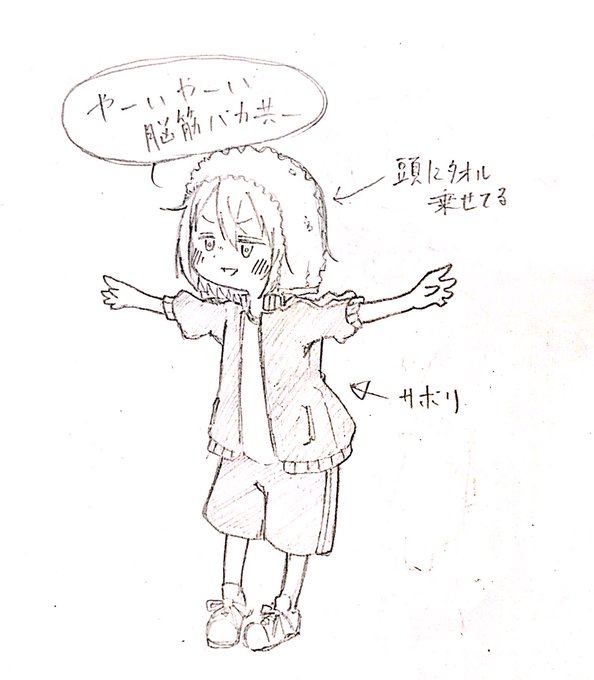 やーいやーい
脳筋バカ共ー
頭にタオル
乗せてる
サボリ